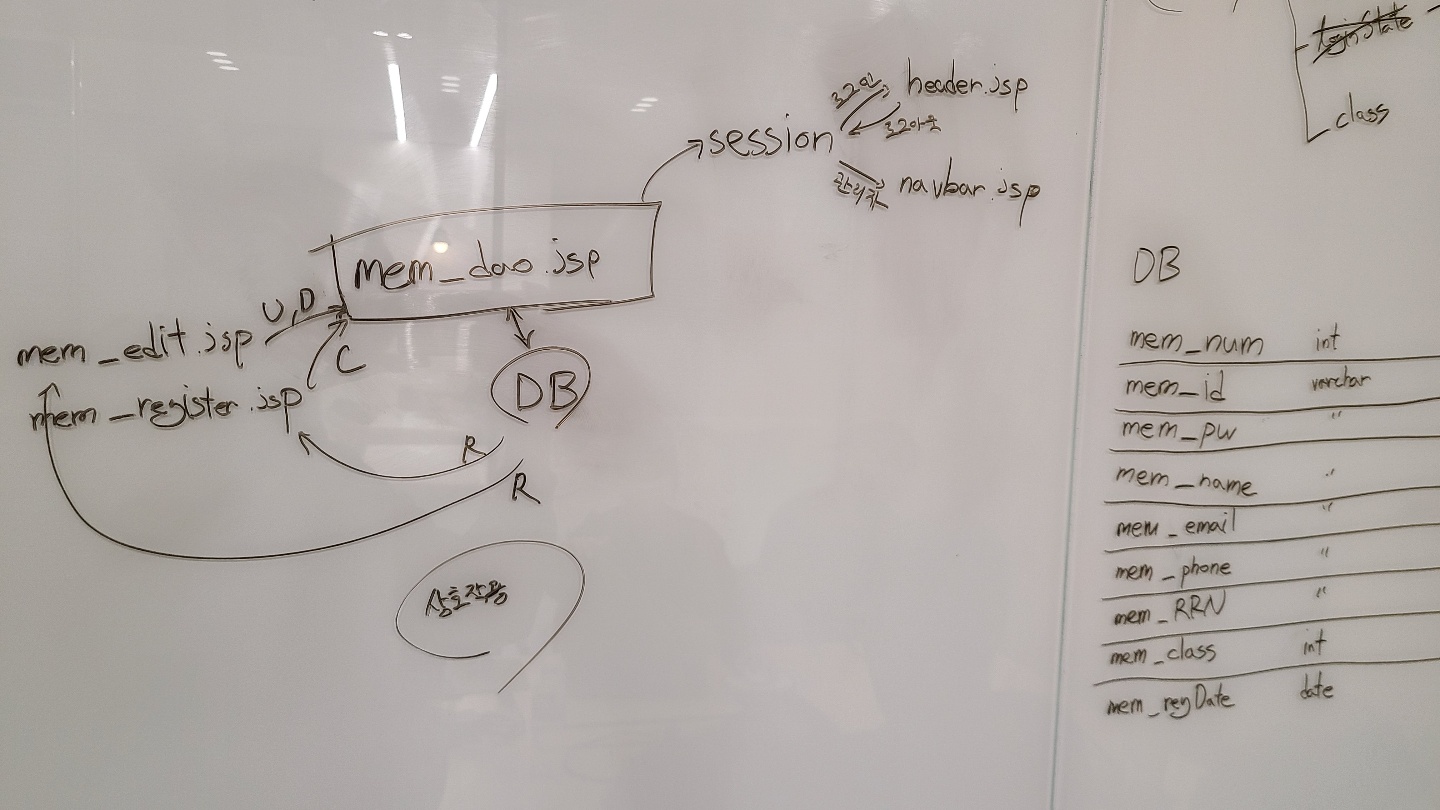 header.jsp
로그인
로그아웃
session
관리자
navbar.jsp
mem_dao.jsp
U,D
mem_edit.jsp
C
mem_register.jsp
DB
R
R
상호작용
loginState
class
DB
mem_num int
mem_id varchar
mem_pw "
mem_name "
mem_email "
mem_phone "
mem_RRN "
mem_class int
mem_regDate date